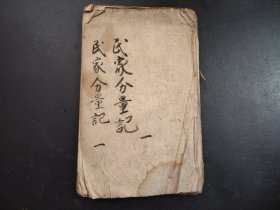 民家分量記 一
民家分量記 一